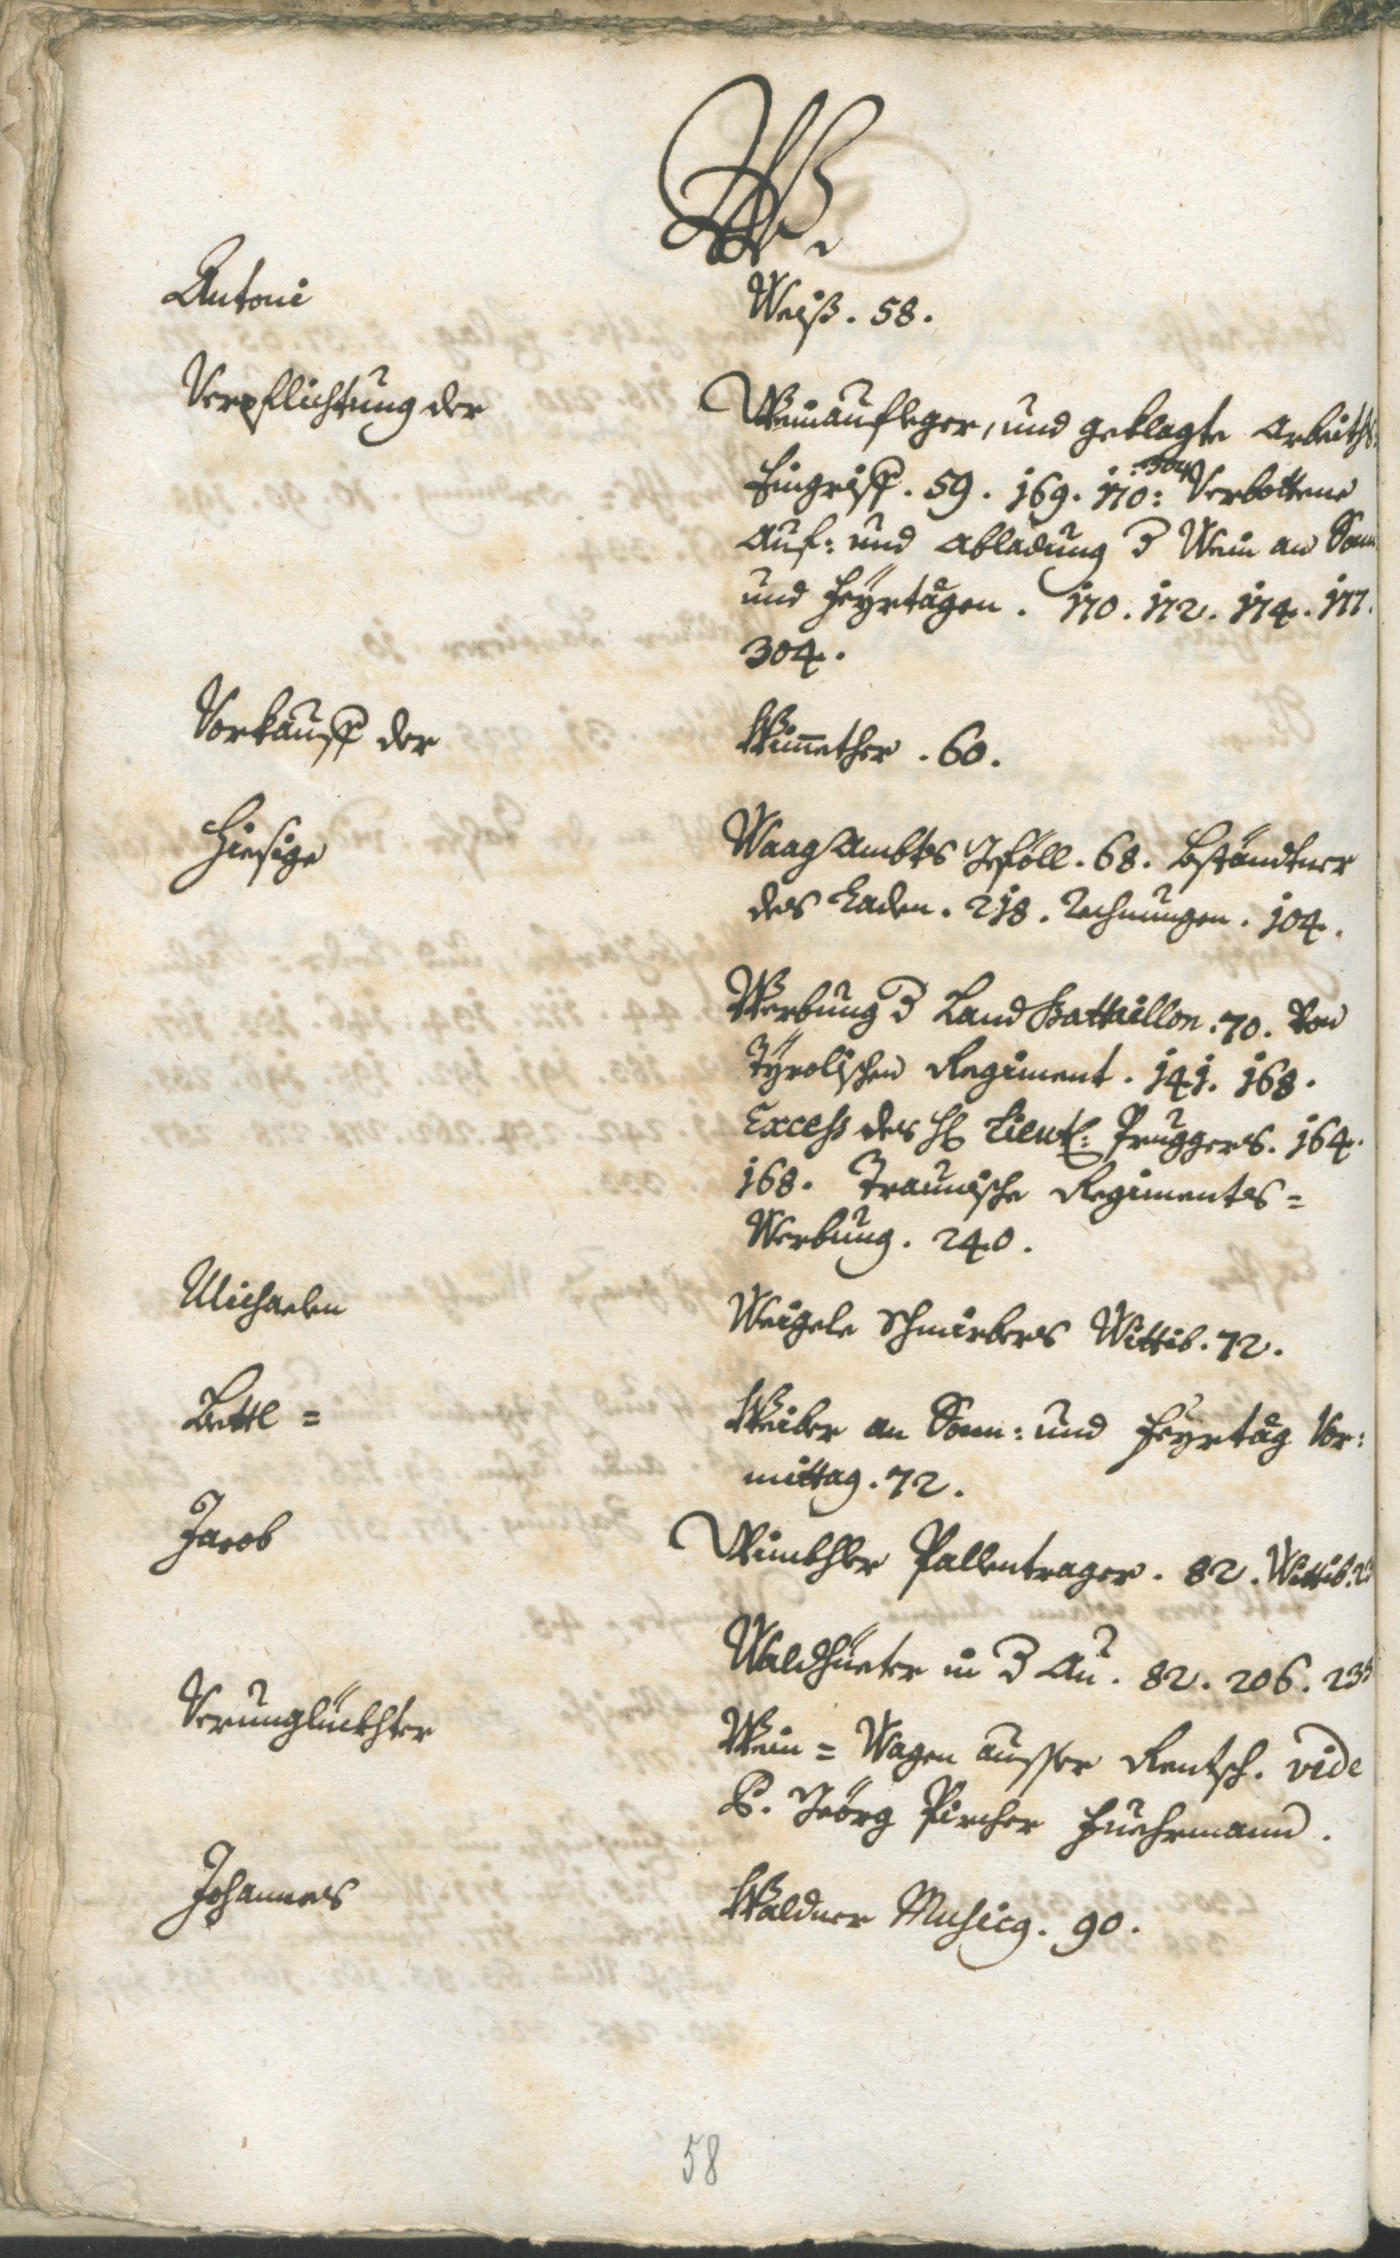 W.
Antoni Weiß. 58.
Verpflichtung der Weinaufleger, und geklagte Arbeiths:
Eingriff. 59. 169. 170: 304 Verbottene
Auf: und Abladung d Wein an Sonn
und Feyrtägen. 170. 172. 174. 177.
304.
Vorkauff der Wimether. 60.
Hiesige Waag Ambts Gföll. 68. Bständtner
des Laden. 218. Rechnungen. 104.
Werbung d Land Battaillon. 70. Von
Tyrolischen Regiment. 141. 168.
Excess des H Lieut: Pruggers. 164.
168. Traunische Regiments=
Werbung. 240.
Michaelen Weigele Wittib. 72.
Bettl = Weiber an Sonn: und Feyrtäg Vor:
mittag. 72.
Jacob Pallentrager. 82. Wittib.
Waldhüeter in d Au. 82. 206.
Verunglückhter Wein = Wagen ausser Rentsch. vide
P. Jeörg Pircher Fuehrmann.
Johannes Waldner Musicg. 90.
58